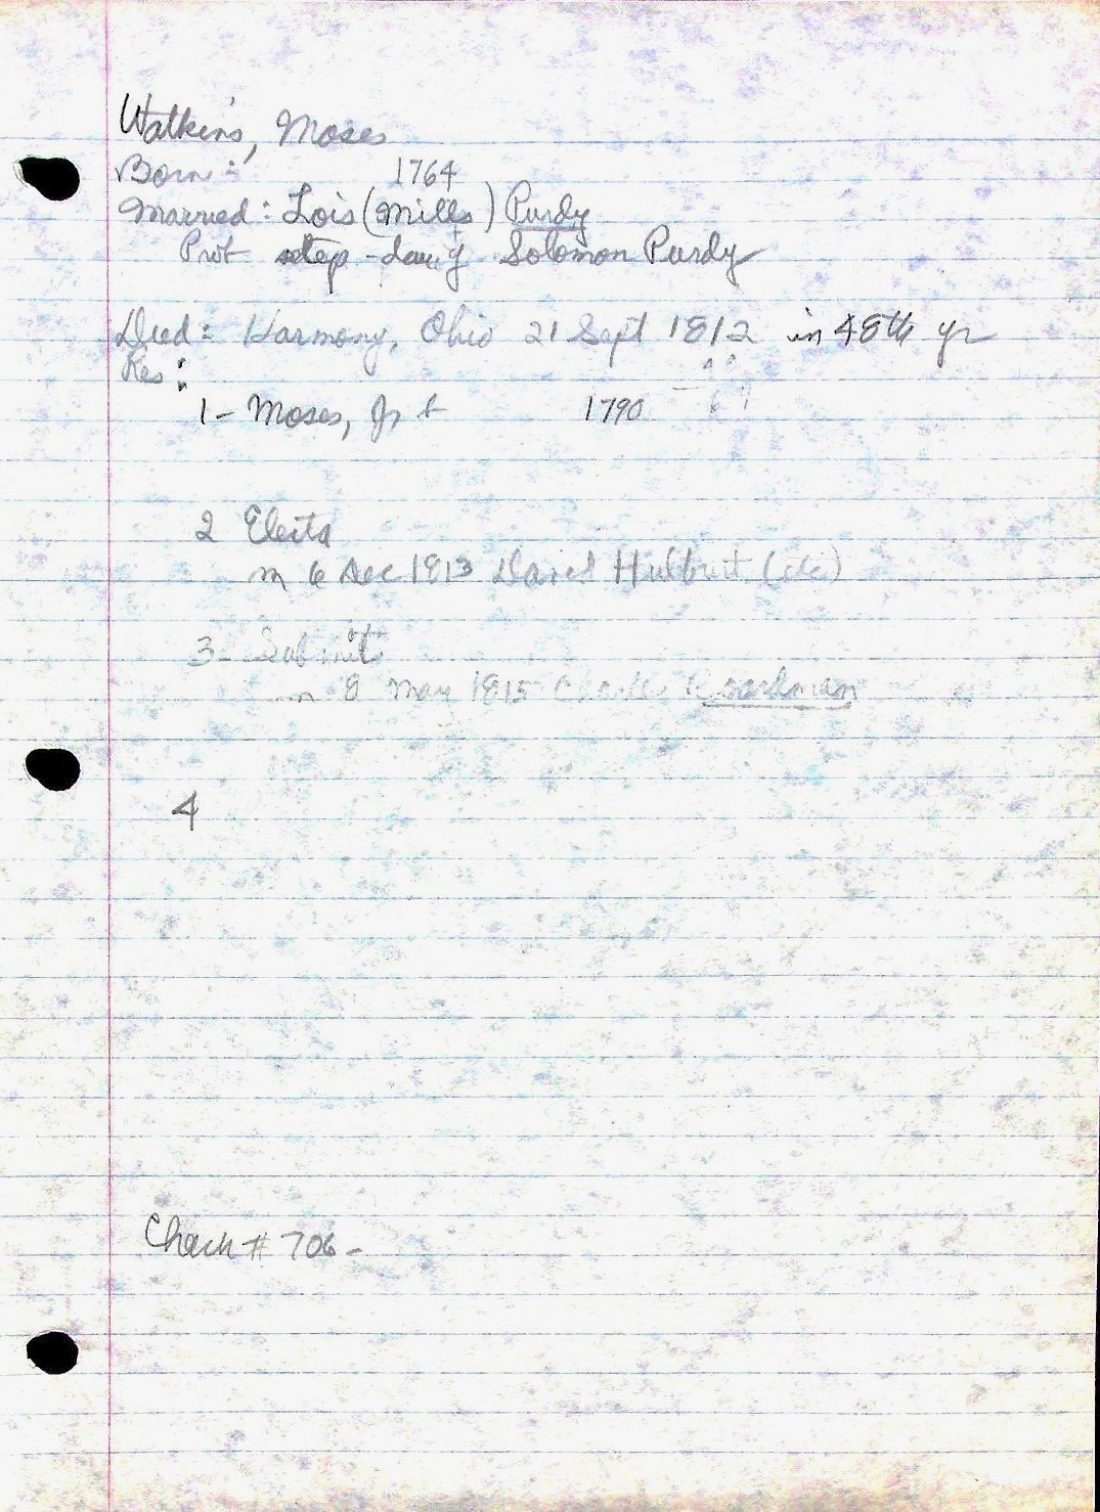 Watkins, Moses
Born: 1764
Married: Lois (Mills) Purdy
step-dau of Solomon Purdy
Died: Harmony, Ohio 21 Sept 1812 in 48th yr
Res:
1- Moses, Jr b 1790
2 Electa
m 6 Dec 1813 David Hulburt
3- Submit
m 8 May 1815 Boardman
4
Check # 706-